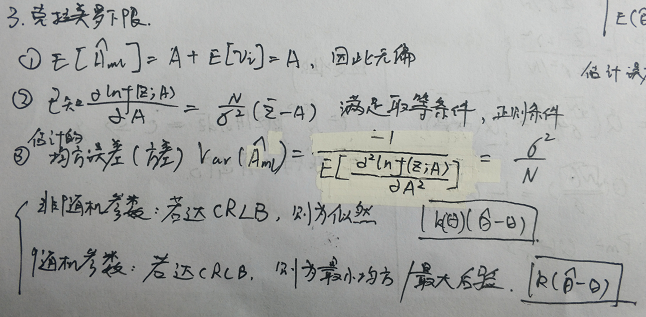 3. 克拉美罗下限.
| E(θ
① E[Âml] = A + E[Vi] = A, 因此无偏
估计误
② 已知 ∂lnf(z;A)/∂A = N/σ² (z̄ - A) 满足取等条件, 正则条件
③ 估计的均方误差(方差) Var(Âml) = -1/E[∂²lnf(z;A)/∂A²] = σ²/N
非随机参数: 若达CRLB, 则为似然 [k(θ)(θ̂-θ)]
随机参数: 若达CRLB, 则为最小均方/最大后验. [k(θ̂-θ)]